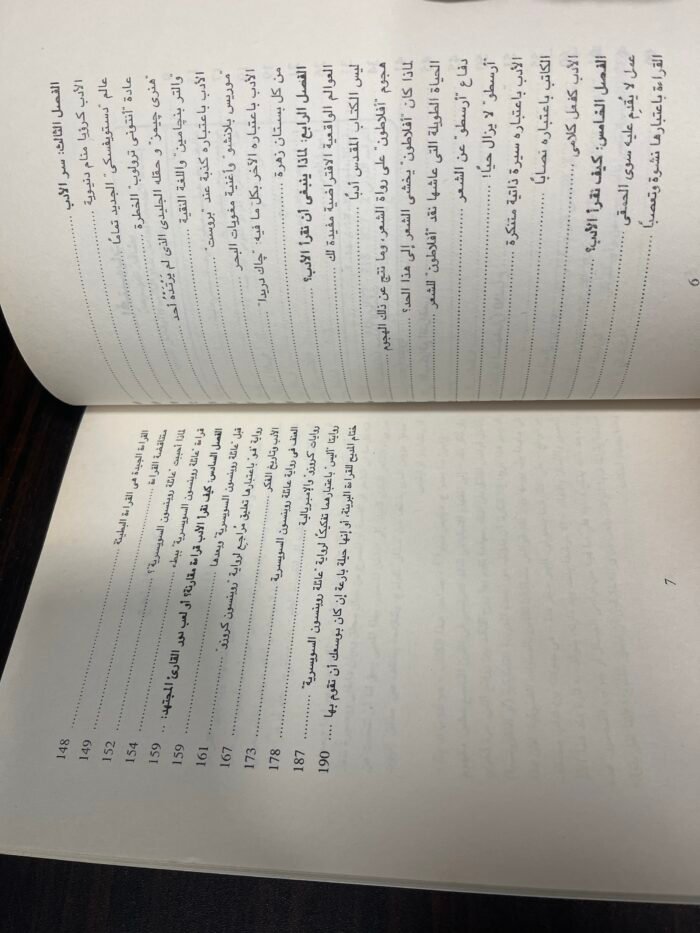 الفصل الثالث: سر الأدب
الأدب كرؤيا منام دنيوية
عالم "دستويفسكى" الجديد تمامًا
عادة "أنتونى ترولوب" الخطرة
"هنرى جيمز" و حقله الجليدى الذى لم يَرْتَدْه أحد
"والتر بنچامين" واللغة النقية
الأدب باعتباره كذبة عند "بروست"
"موريس بلانشو" وأغنية مغويات البحر
الأدب باعتباره الآخر بكل ما فيه: "چاك دريدا"
من كل بستان زهرة
الفصل الرابع: لماذا ينبغى أن نقرأ الأدب؟
العوالم الواقعية الافتراضية مفيدة لك
ليس الكتاب المقدس أدبًا
هجوم "أفلاطون" على رواة الشعر، وما نتج عن ذلك الهجوم
لماذا كان "أفلاطون" يخشى الشعر إلى هذا الحد؟
الحياة الطويلة التى عاشها نقد "أفلاطون" للشعر
دفاع "أرسطو" عن الشعر
"أرسطو" لا يزال حيًا!
الأدب باعتباره سيرة ذاتية متنكرة
الكاتب باعتباره نصابًا
الأدب كفعل كلامى
الفصل الخامس: كيف نقرأ الأدب؟
عمل لا يُقدِم عليه سوى الحمقى
القراءة باعتبارها نشوة وتعصبًا
6
القراءة الجيدة هى القراءة البطيئة 148
متناقضة القراءة 149
لماذا أحببت "عائلة روبنسون السويسرية"؟ 152
قراءة "عائلة روبنسون السويسرية" ببطء 154
الفصل السادس: كيف نقرأ الأدب قراءة مقارنة؟ أو لعب دور القارئ المجتهد: 159
قبل "عائلة روبنسون السويسرية" وبعدها 159
رواية "فو" باعتبارها تعليق مُراجع لرواية "روبنسون كروزو" 161
الأدب وتاريخ الفكر 167
العنف فى رواية عائلة روبنسون السويسرية 173
روايات كروزو والإمبريالية 178
روايتا أليس باعتبارهما تفكيكًا لرواية "عائلة روبنسون السويسرية" 187
ختام المديح للقراءة البريئة، أو إنها حيلة بارعة إن كان بوسعك أن تقوم بها 190
7